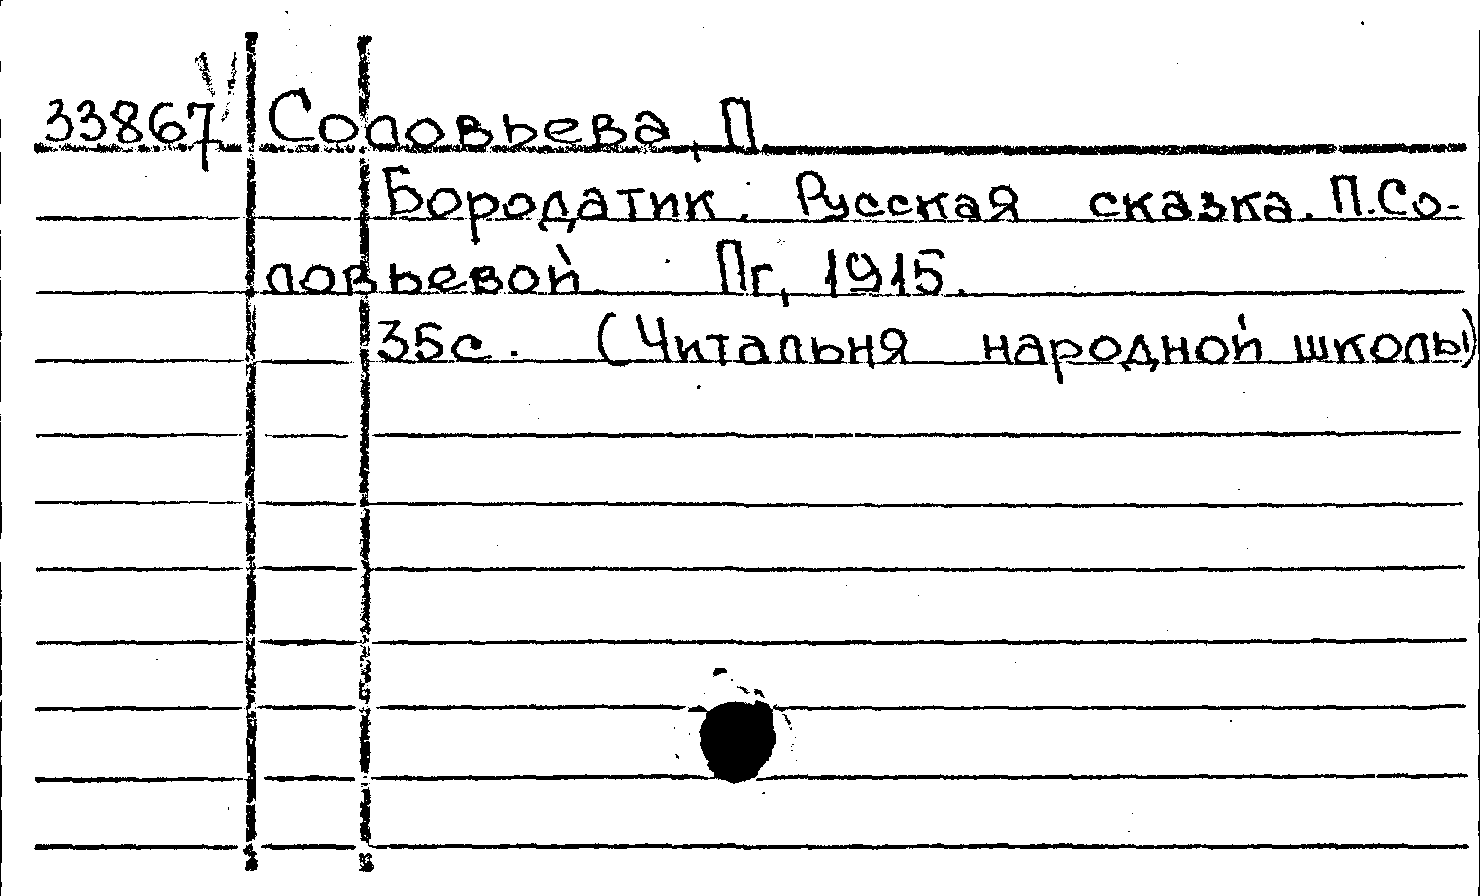 33867 Соловьева, П
Бородатик. Русская сказка. П.Со-
ловьевой. Пг, 1915.
35с. (Читальня народной школы)